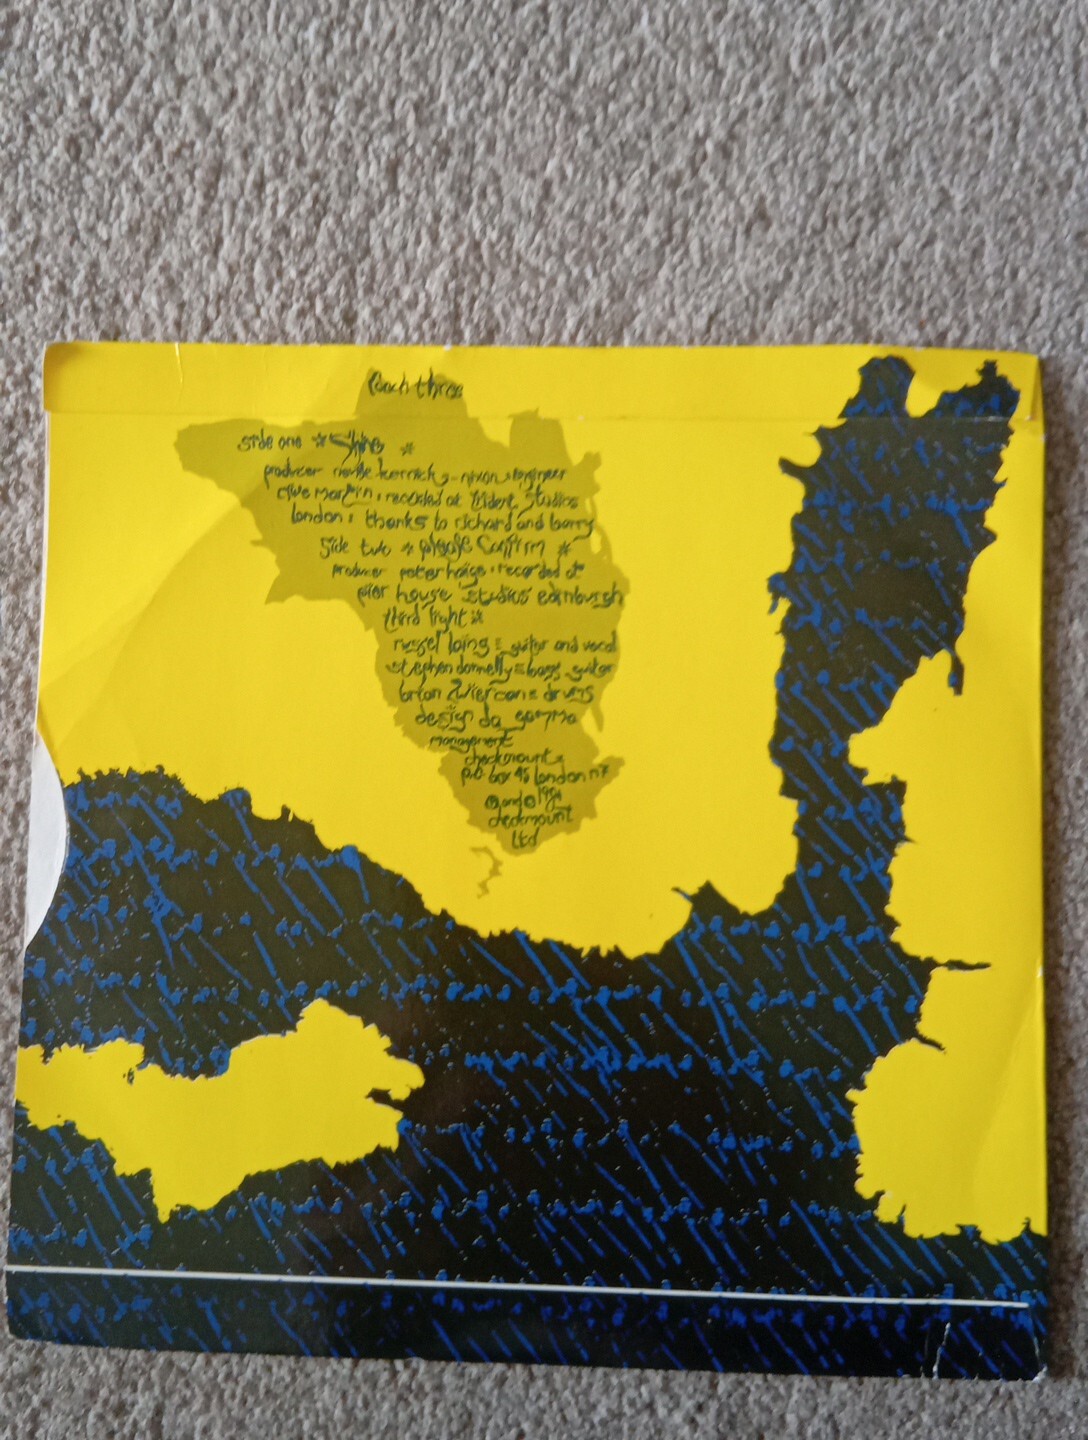 three
side one * Shine *
producer neville kerrick-nixon : engineer
clive martin : recorded at trident studios
london : thanks to richard and barry
side two * please Confirm *
producer peter haigs : recorded at
pier house studios edinburgh
third light *
russel laing = guitar and vocal
stephen donnelly = bass guitar
brian = drums
design da gamma
management
checkmount
p.o. box 45 london n7
checkmount
Ltd